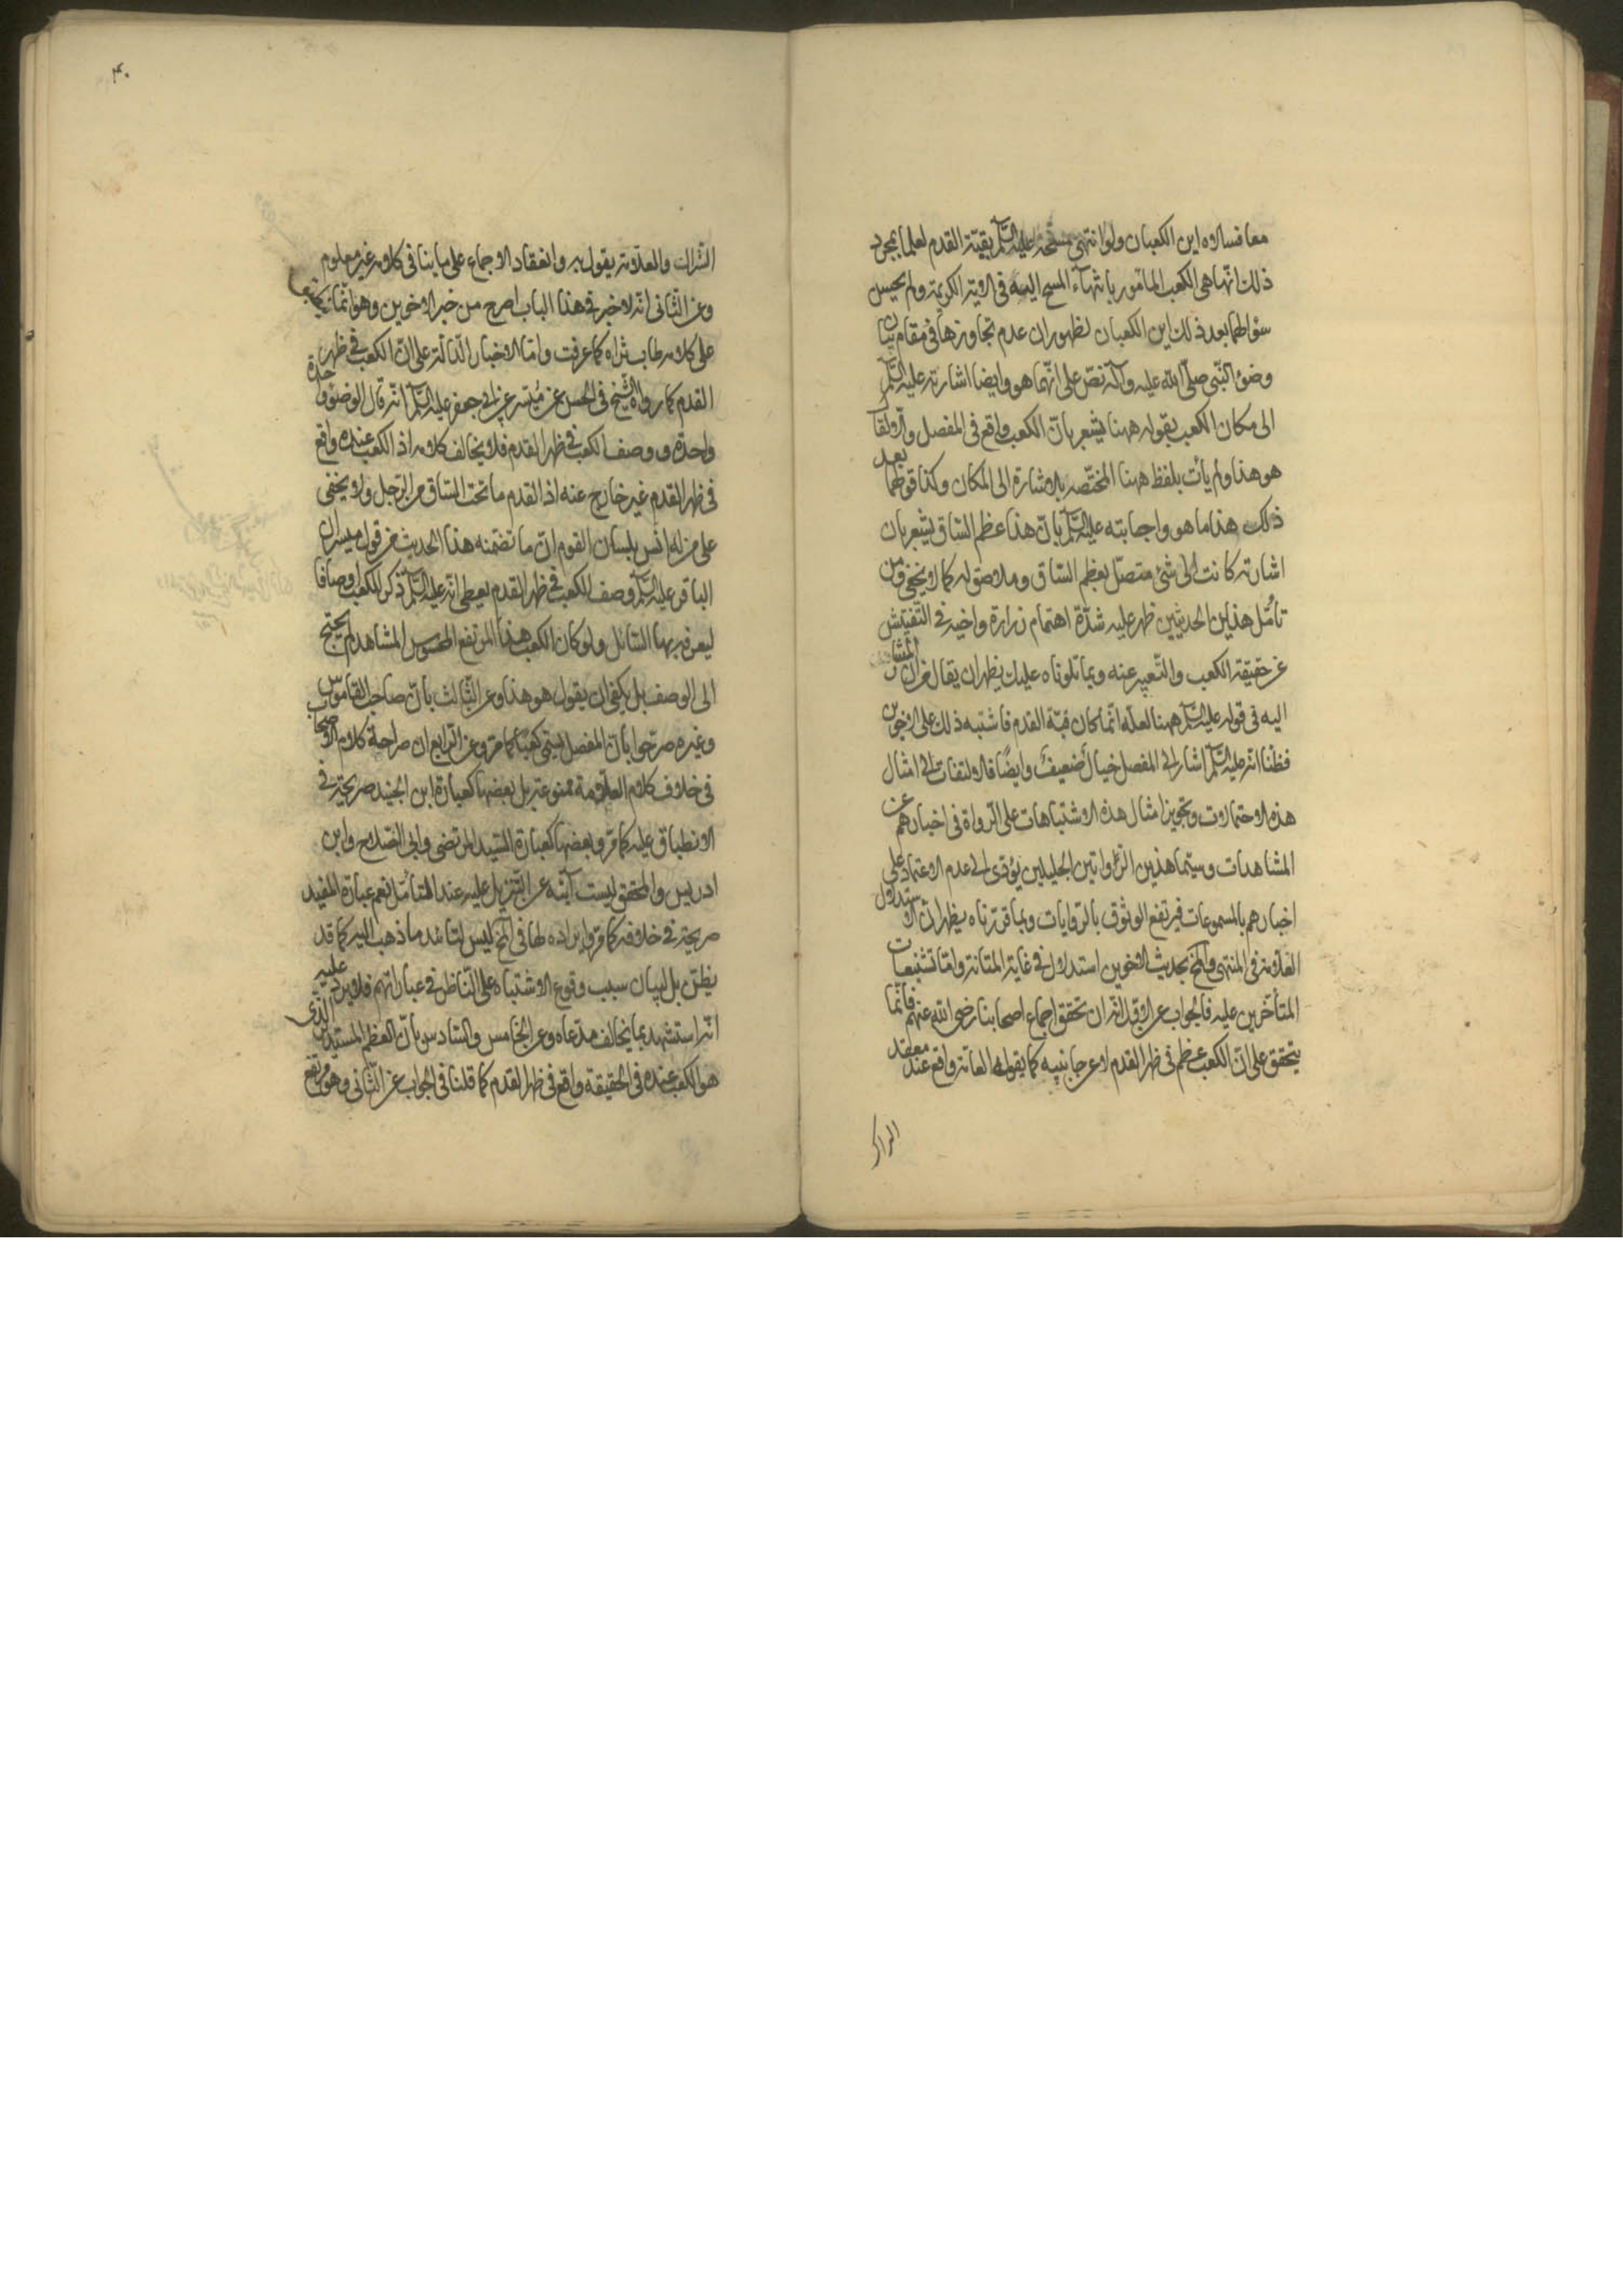 معا فسالاه اين الكعبان ولو انتهى مسحه عليه السلم بقبة القدم لعلما بمجرد
ذلك انها هي الكعب المأمور بانتهاء المسح اليه في الاية الكريمة ولم يحسن
سؤالهما بعد ذلك اين الكعبان لظهور ان عدم تجاوزها في مقام بيان
وضوء النبي صلى الله عليه وآله نص على انهما هو وايضا اشارته عليه السلم
الى مكان الكعب بقوله ههنا يشعر بان الكعب واقع في المفصل والا لقال
هو هذا ولم يأت بلفظ ههنا المختصة بالاشارة الى المكان وكذا قولهما بعد
ذلك هذا ما هو واجابته عليه السلم بان هذا عظم الساق يشعر بان
اشارته كانت الى شئ متصل بعظم الساق وملاصق له كما لا يخفى ومن
تأمل هذين الحديثين ظهر عليه شدة اهتمام زرارة واخيه في التفتيش
عن حقيقة الكعب والتعبير عنه وبما تلوناه عليك يظهر ان يقال من ان المشار
اليه في قوله عليه السلم ههنا لعله انما كان قبة القدم فاشتبه ذلك على الاخوين
فظنا انه عليه السلم اشار الى المفصل خيال ضعيف وايضا فالالتفات الى امثال
هذه الاحتمالات وتجويز امثال هذه الاشتباهات على الرواة في اخبارهم عن
المشاهدات وسيما هذين الراوايتين الجليلين يؤدى الى عدم الاعتماد على
اخبارهم بالمسموعات فيرتفع الوثوق بالروايات وبما قررناه يظهر ان الاستدلال
العلامة في المنتهى والمخ بحديث الاخوين استدلال في غاية المتانة واما تشنيعات
المتأخرين عليه فالجواب عن الاول انه ان تحقق اجماع اصحابنا رضى الله عنهم فانما
يتحقق على ان الكعب عظم في ظهر القدم لا عن جانبيه كما يقوله العامة واقع عند معقد
الشراك
۴۰
الشراك والعلامة يقول به وانعقاد الاجماع على ما ينافى كلامه غير معلوم
وعن الثاني انه لا خبر في هذا الباب اصرح من خبر الاخوين وهو انما ينطبق
على كلامه طاب ثراه كما عرفت واما الاخبار الدالة على ان الكعب في ظهر
القدم كما رواه الشيخ في الحسن عن ميسر عن ابى جعفر عليه السلم انه قال الوضوء واحدة
واحدة ووصف الكعب في ظهر القدم فلا يخالف كلامه اذ الكعب عنده واقع
في ظهر القدم غير خارج عنه اذ القدم ما تحت الساق من الرجل ولا يخفى
على من له انس بلسان القوم ان ما تضمنه هذا الحديث من قول ميسر ان
الباقر عليه السلم وصف الكعب في ظهر القدم يعطى انه عليه السلم ذكر للكعب اوصافا
ليعرفه بها السائل ولو كان الكعب هذا المرتفع المحسوس المشاهد لم يحتج
الى الوصف بل يكفى ان يقول هو هذا وعن الثالث بان صاحب القاموس
وغيره صرحوا بان المفصل يسمى كعبا كما مر وعن الرابع ان صراحة كلام الاصحاب
في خلاف كلام العلامة ممنوعة بل بعضها كعبارة ابن الجنيد صريحة في
الانطباق عليه كما مر وبعضها كعبارة السيد المرتضى وابى الصلاح وابن
ادريس والمحقق ليست آبية عن التنزيل عليه عند المتأمل نعم عبارة المفيد
صريحة في خلافه كما مر وايراده لها في المخ ليس لتائيد ما ذهب اليه كما قد
يظن بل لبيان سبب وقوع الاشتباه على الناظر في عباراتهم فلا يرد عليه
انه استشهد بما يخالف مدعاه وعن الخامس والسادس بان العظم المستدير الذى
هو الكعب عنده في الحقيقة واقع في ظهر القدم كما قلنا في الجواب عن الثاني وهو مرتفع